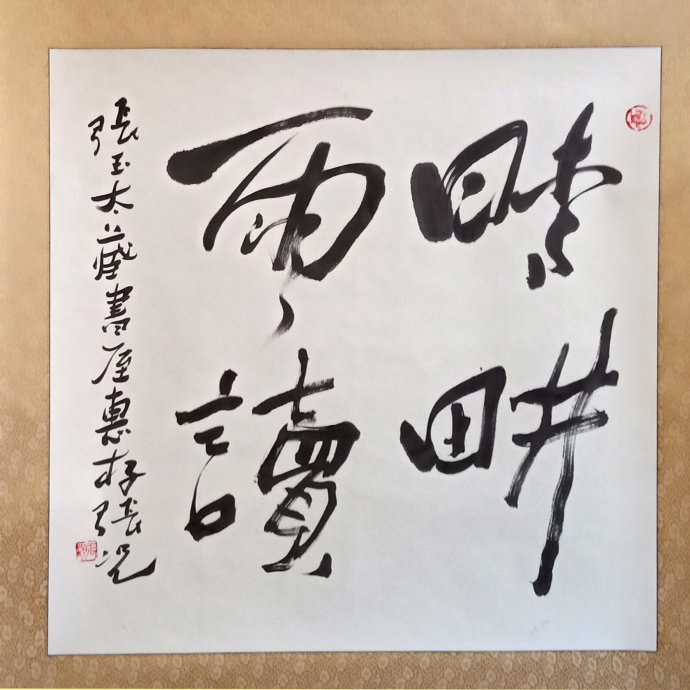 晴畊
雨讀
張玉太藏書屋惠存張況